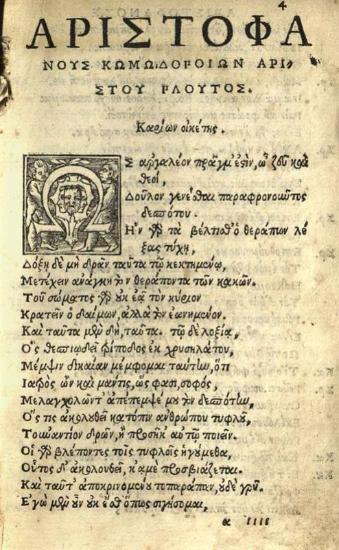 4
ΑΡΙΣΤΟΦΑ
ΝΟΥΣ ΚΩΜΩΔΟΡΟΙΩΝ ΑΡΙ
ΣΤΟΥ ΡΛΟΥΤΟΣ.
Καρίων οἰκέτης.
Ω Σ ἀργαλέον πρᾶγμ' ἐςὶν, ὦ ζεῦ καὶ
θεοὶ,
Δοῦλον γενέσθαι παραφρονοῦντος
δεσπότου.
Ην γὸ τὰ βέλτισθ' ὁ θεράπων λέ
ξας τύχῃ,
Δόξῃ δὲ μὴ δρᾶν ταῦτα τῷ κεκτημένῳ,
Μετέχειν ἀνάγκη τὸν θεράποντα τῶν κακῶν.
Τοῦ σώματος γὸ οὐκ ἐᾷ τὸν κύριον
Κρατεῖν ὁ δαίμων, ἀλλὰ τὸν ἐωνημένον.
Καὶ ταῦτα μὲν δὴ, ταῦτα. τῷ δὲ λοξίᾳ,
Ος θεσπιωδεῖ τρίποδος ἐκ χρυσηλάτου,
Μέμψιν δικαίαν μέμφομαι ταύτίω, ὅτι
Ιατρὸς ὢν καὶ μάντις, ὥς φασι, σοφὸς,
Μελαγχολῶντ' ἀπέπεμψέ μου τὸν δεσπότίω,
Ος τις ἀκολουθεῖ κατόπιν ἀνθρώπου τυφλοῦ,
Τοὐναντίον δρῶν, ἢ προσῆκ' αὐτῷ ποιεῖν.
Οἱ γὸ βλέποντες τοῖς τυφλοῖς ἡγούμεθα,
Οὗτος δ' ἀκολουθεῖ, κἀμὲ προσβιάζεται.
Καὶ ταῦτ' ἀποκρινομένου τοπαράπαν, οὐδὲ γρῦ.
Εγὼ μὲν οὖν οὐκ ἔσθ' ὅπως σιγήσομαι,
α iiii